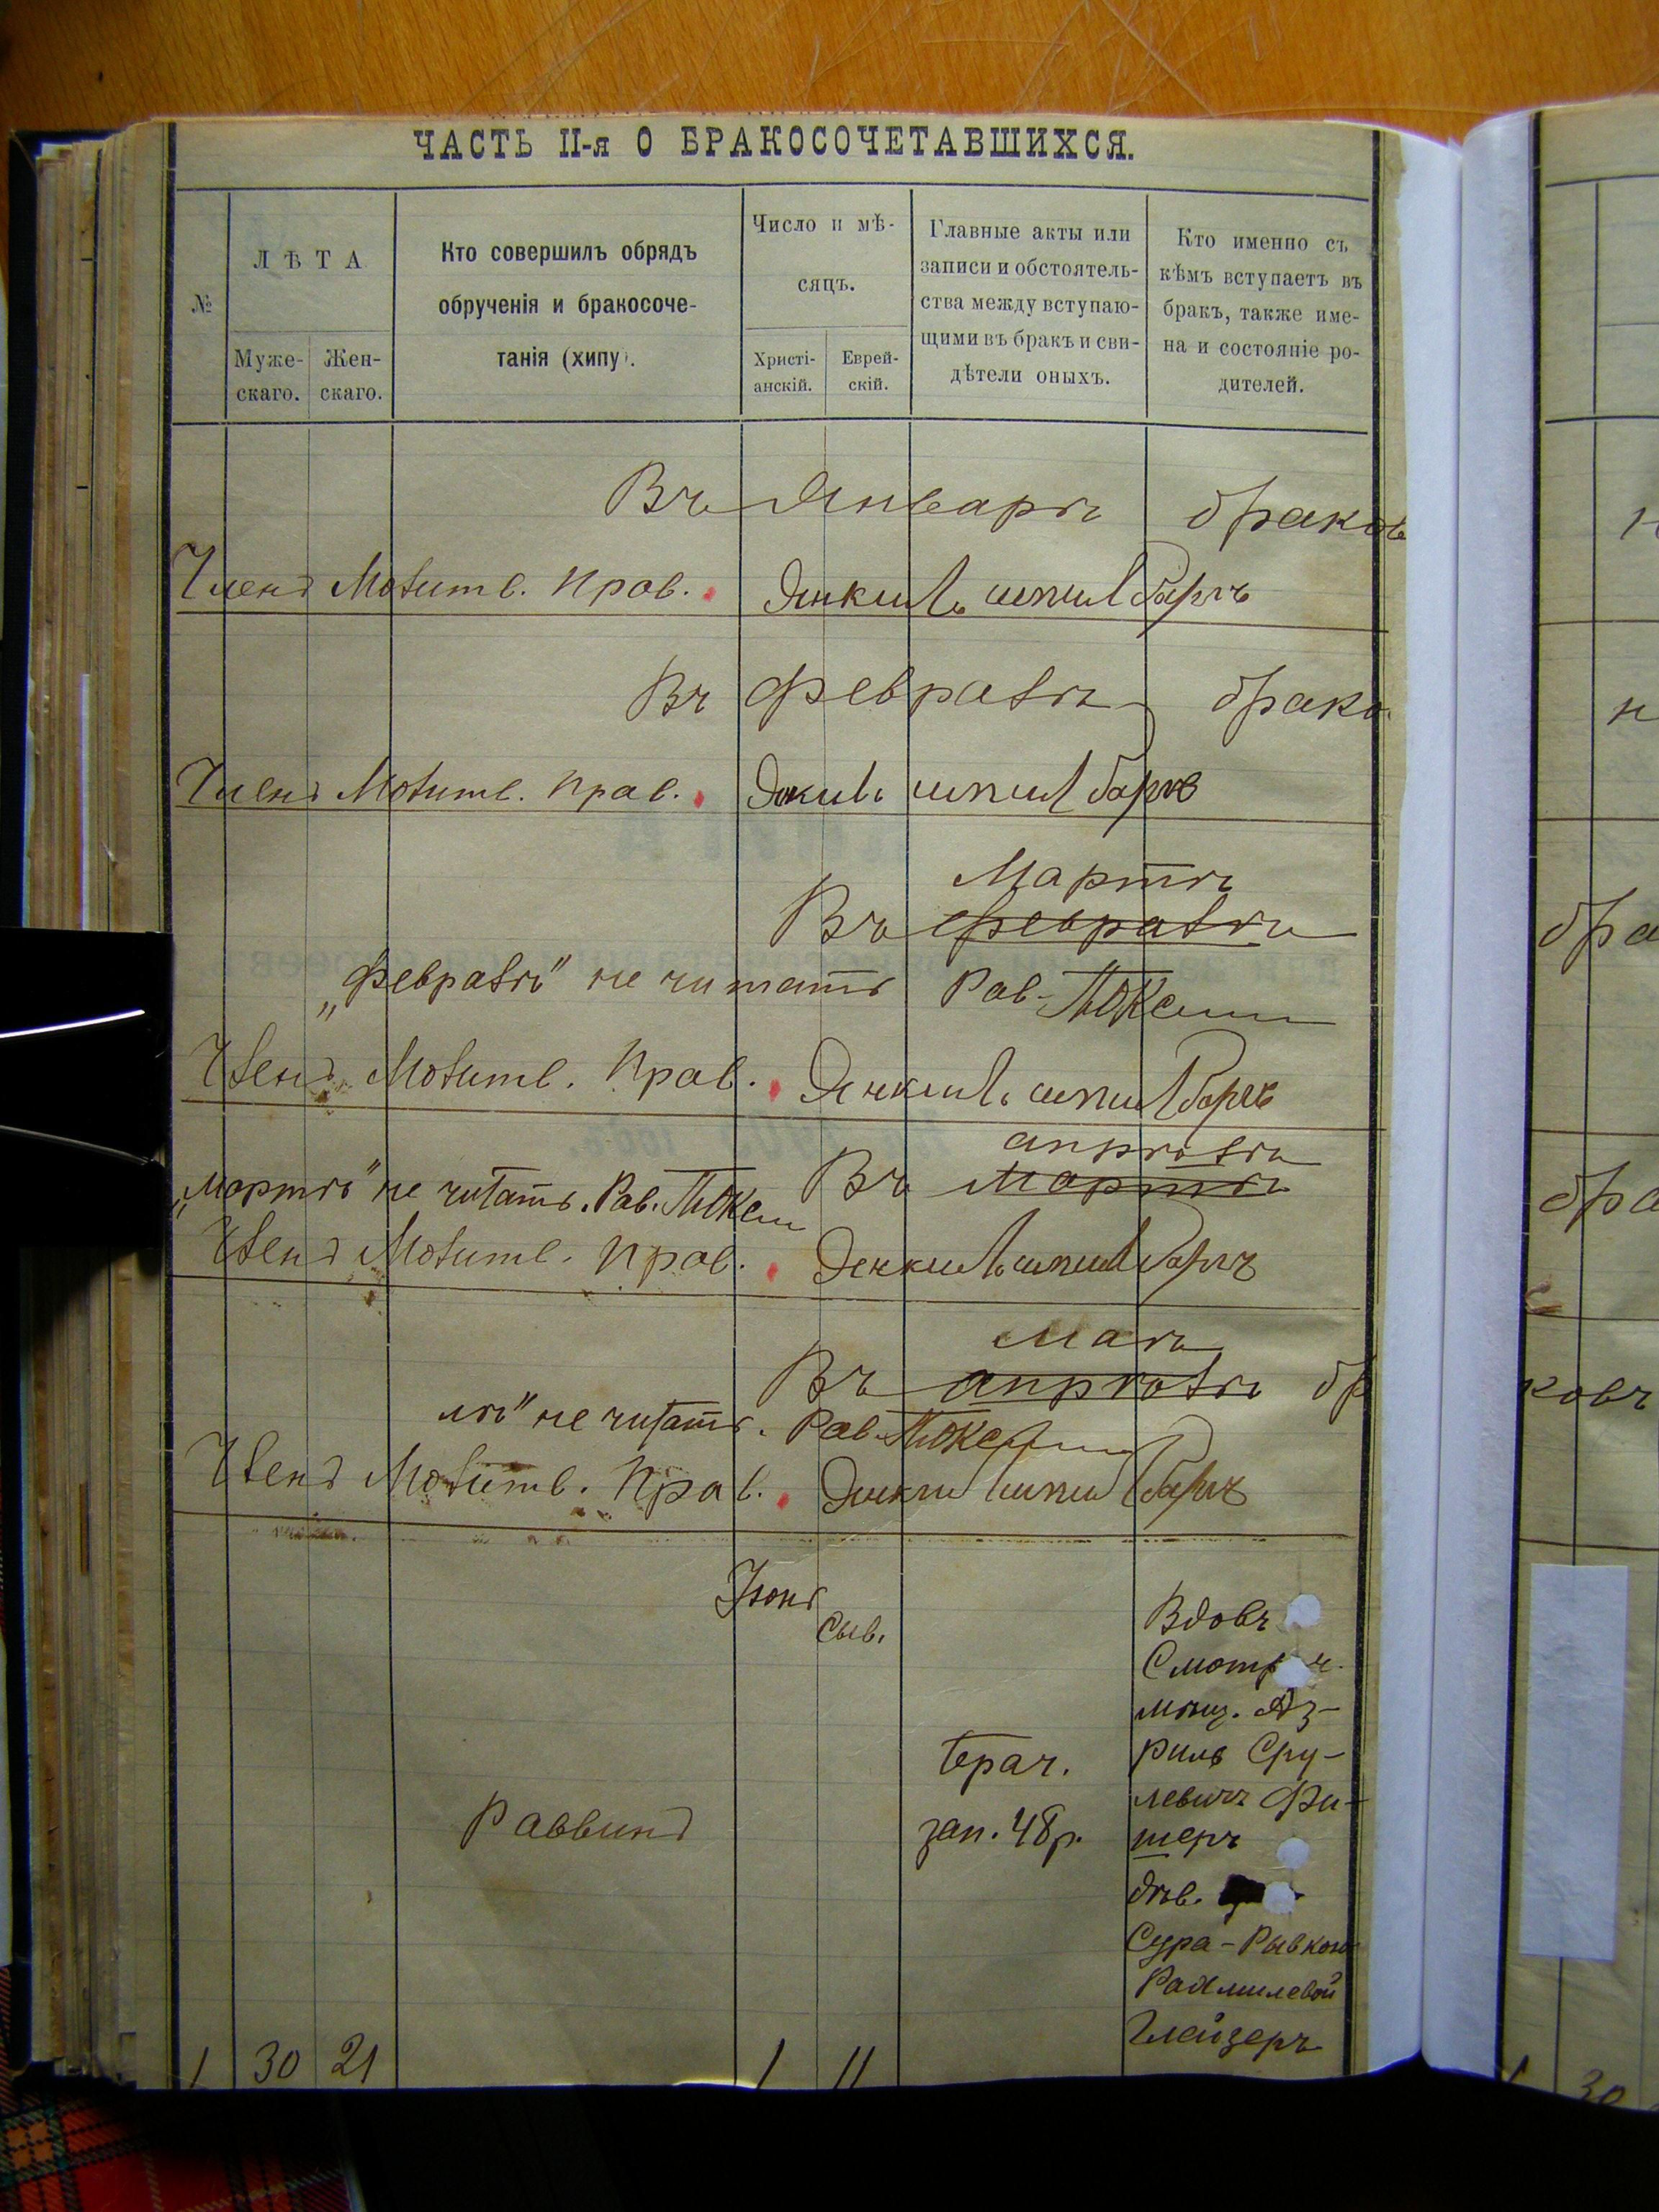 ЧАСТЬ II-я О БРАКОСОЧЕТАВШИХСЯ.
№
ЛѢТА
Муже-
скаго.
Жен-
скаго.
Кто совершилъ обрядъ
обрученія и бракосоче-
танія (хипу).
Число и мѣ-
сяцъ.
Христі-
анскій.
Еврей-
скій.
Главные акты или
записи и обстоятель-
ства между вступаю-
щими въ бракъ и сви-
дѣтели оныхъ.
Кто именно съ
кѣмъ вступаетъ въ
бракъ, также име-
на и состояніе ро-
дителей.
Въ Январѣ браков
Членъ Молитв. Прав. Янкиль Шпилбаргъ
Въ Февралѣ брако
Членъ Молитв. Прав. Янкиль Шпилбаргъ
Мартѣ
Въ Февралѣ
„Февралѣ" не читать Рав.
Членъ Молитв. Прав. Янкиль Шпилбаргъ
апрѣлѣ
Въ Мартѣ
„Мартѣ" не читать. Рав.
Членъ Молитв. Прав. Янкиль Шпилбаргъ
Маѣ
Въ апрѣлѣ бр
лѣ" не читать. Рав.
Членъ Молитв. Прав. Янкиль Шпилбаргъ
Іюнь
Сыв.
Вдовъ
мѣщ. Аз-
риль Сру-
левичъ Фи-
шеръ
дѣв.
Сура-Рывкою
Рахмилевой
Глейзеръ
Брач.
зап. 48 р.
Раввинъ
1 30 21 1 11
бра
бра
ковъ
30